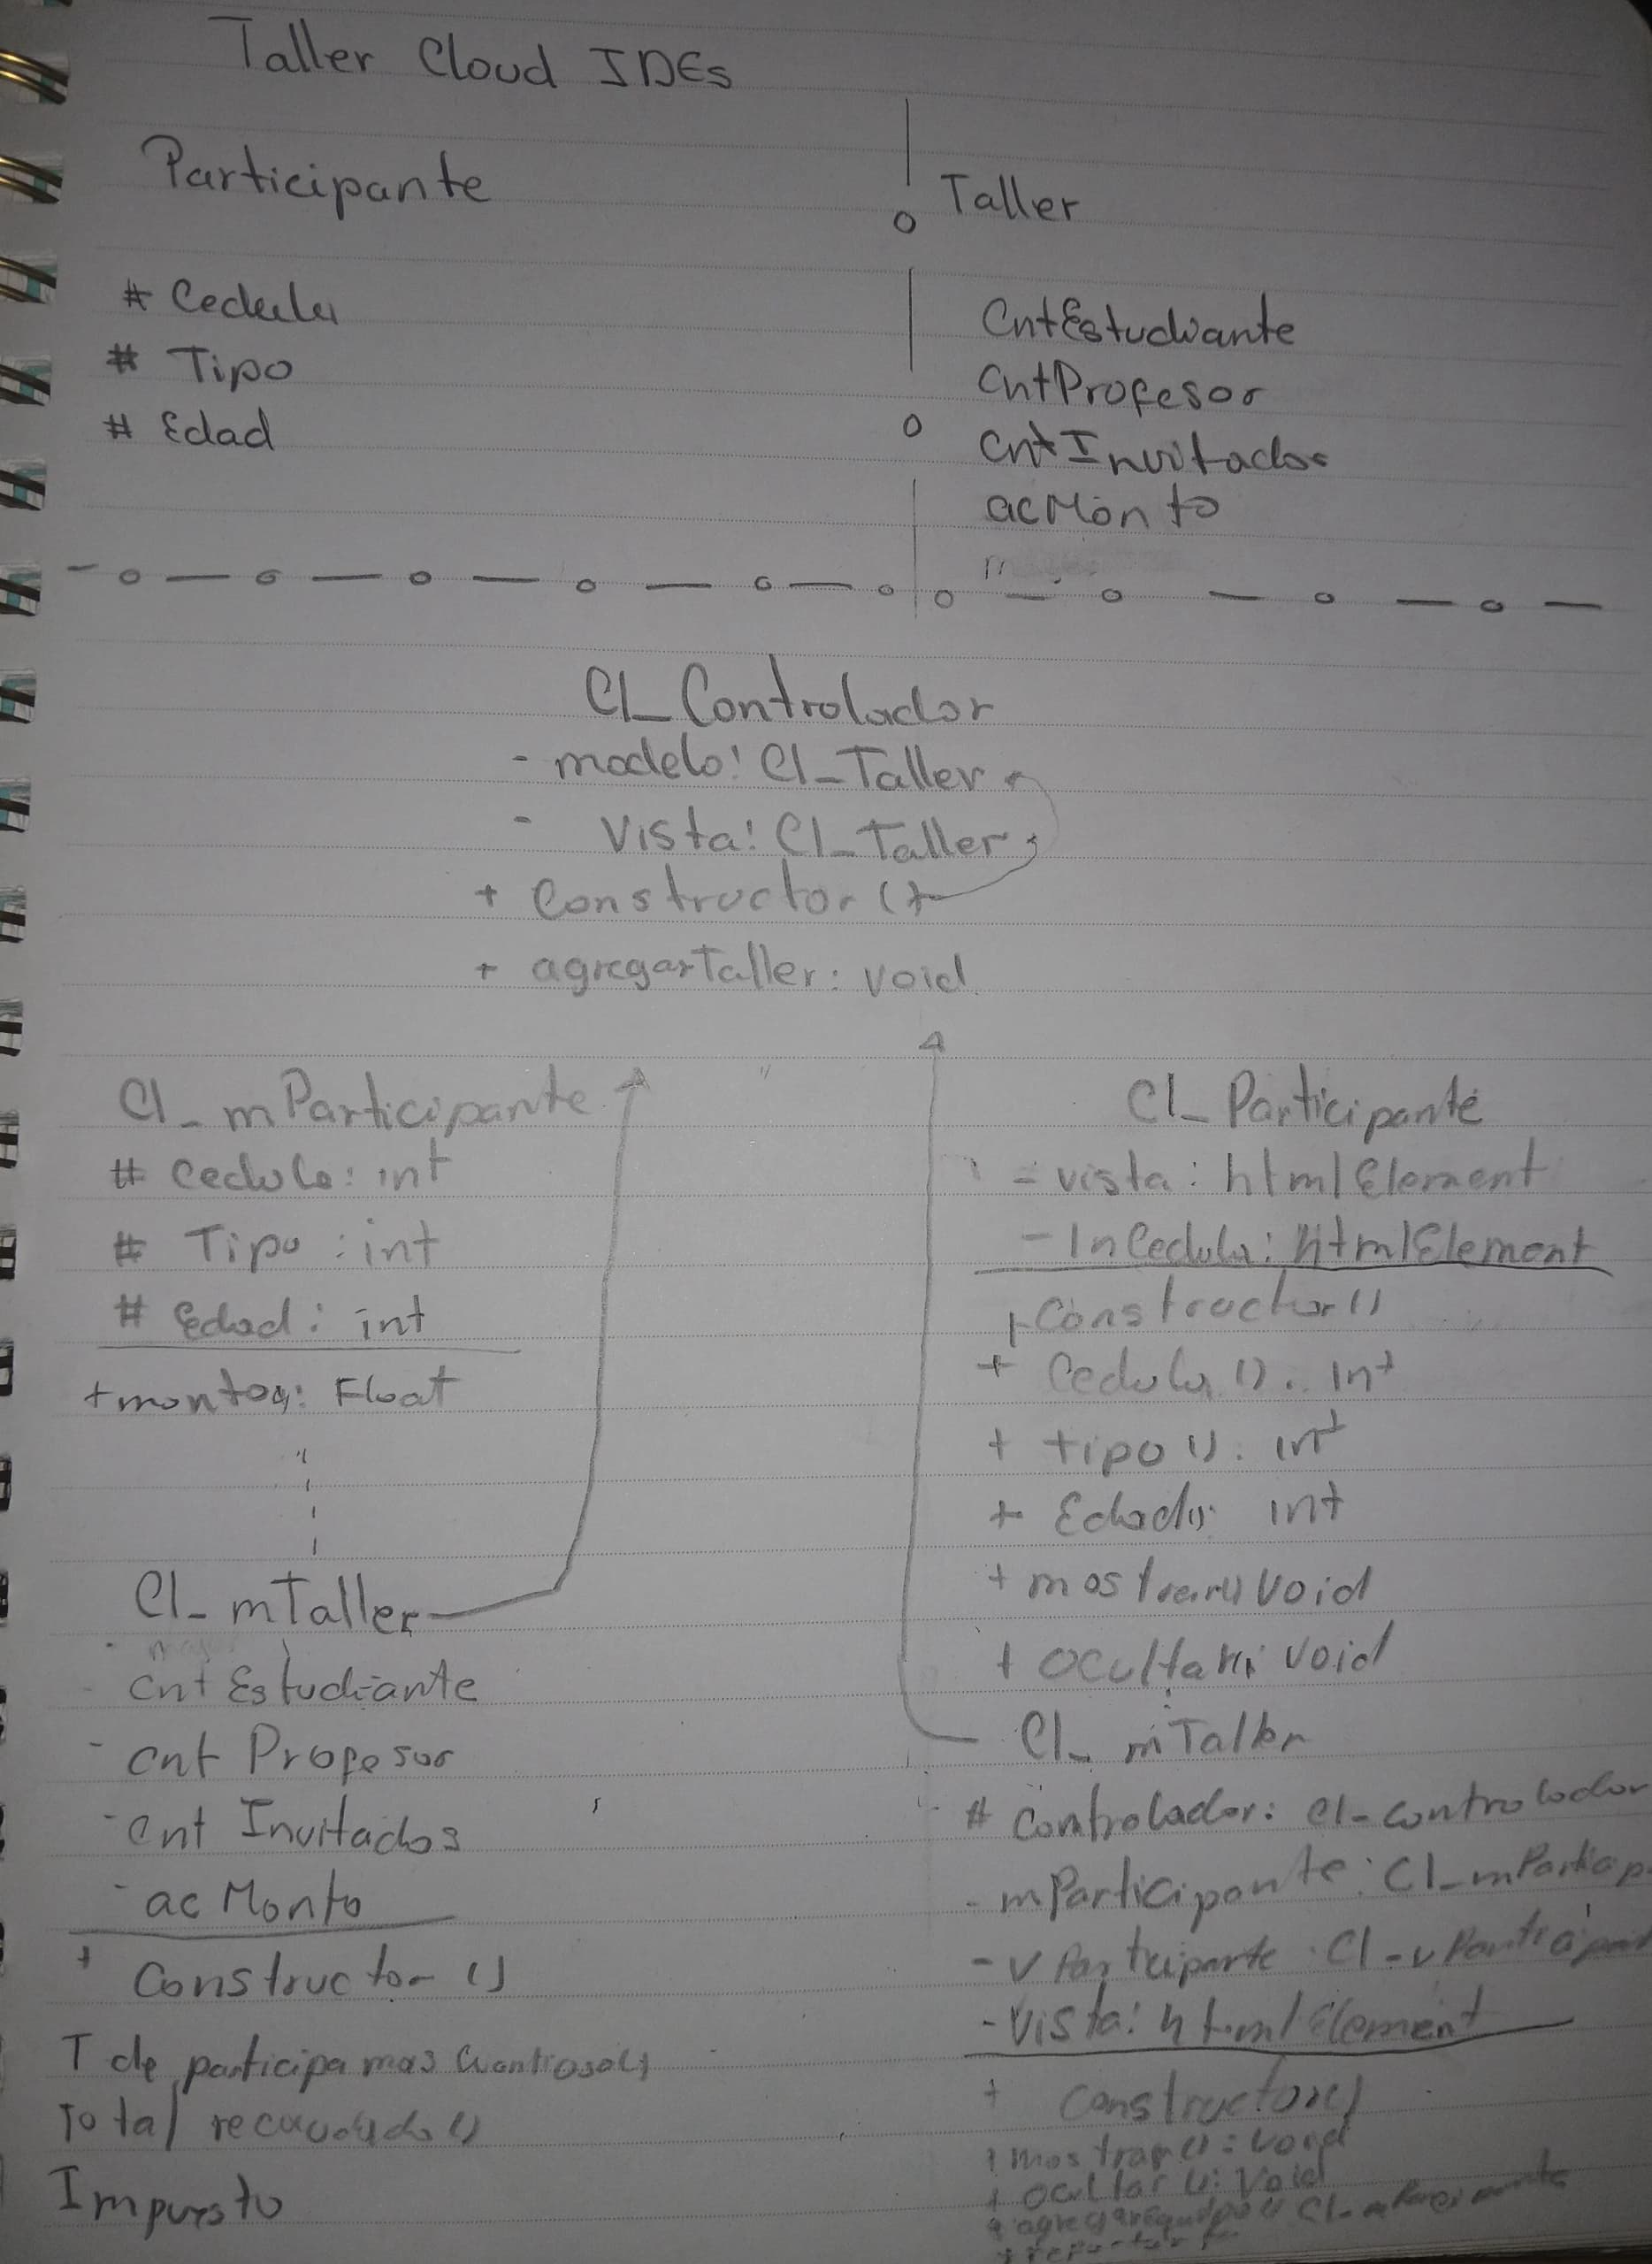 Taller Cloud IDEs
Participante
# Cedula
# Tipo
# Edad
Taller
CntEstudiante
CntProfesor
CntInvitados
acMonto
Cl_Controlador
- modelo: Cl_Taller
- Vista: Cl_Taller
+ Constructor ()
+ agregarTaller: void
Cl_mParticipante
# Cedula: int
# Tipo: int
# Edad: int
+montoq: Float
Cl_mTaller
- cnt Estudiante
- cnt Profesor
- cnt Invitados
- ac Monto
+ Constructor ()
T de participa mas cuantiosa()
Total recaudado()
Impuesto
Cl_Participante
- vista: htmlElement
- InCedula: htmlElement
+ Constructor ()
+ Cedula (): Int
+ tipo (): int
+ Edad(): int
+ mostrar() void
+ ocultar(): void
Cl_mTaller
# controlador: Cl-controlador
- mParticipante: Cl_mParticip
- vParticiparte: Cl-vParticipant
- Vista: htmlElement
+ constructor()
+ mostrar(): void
+ ocultar (): Void